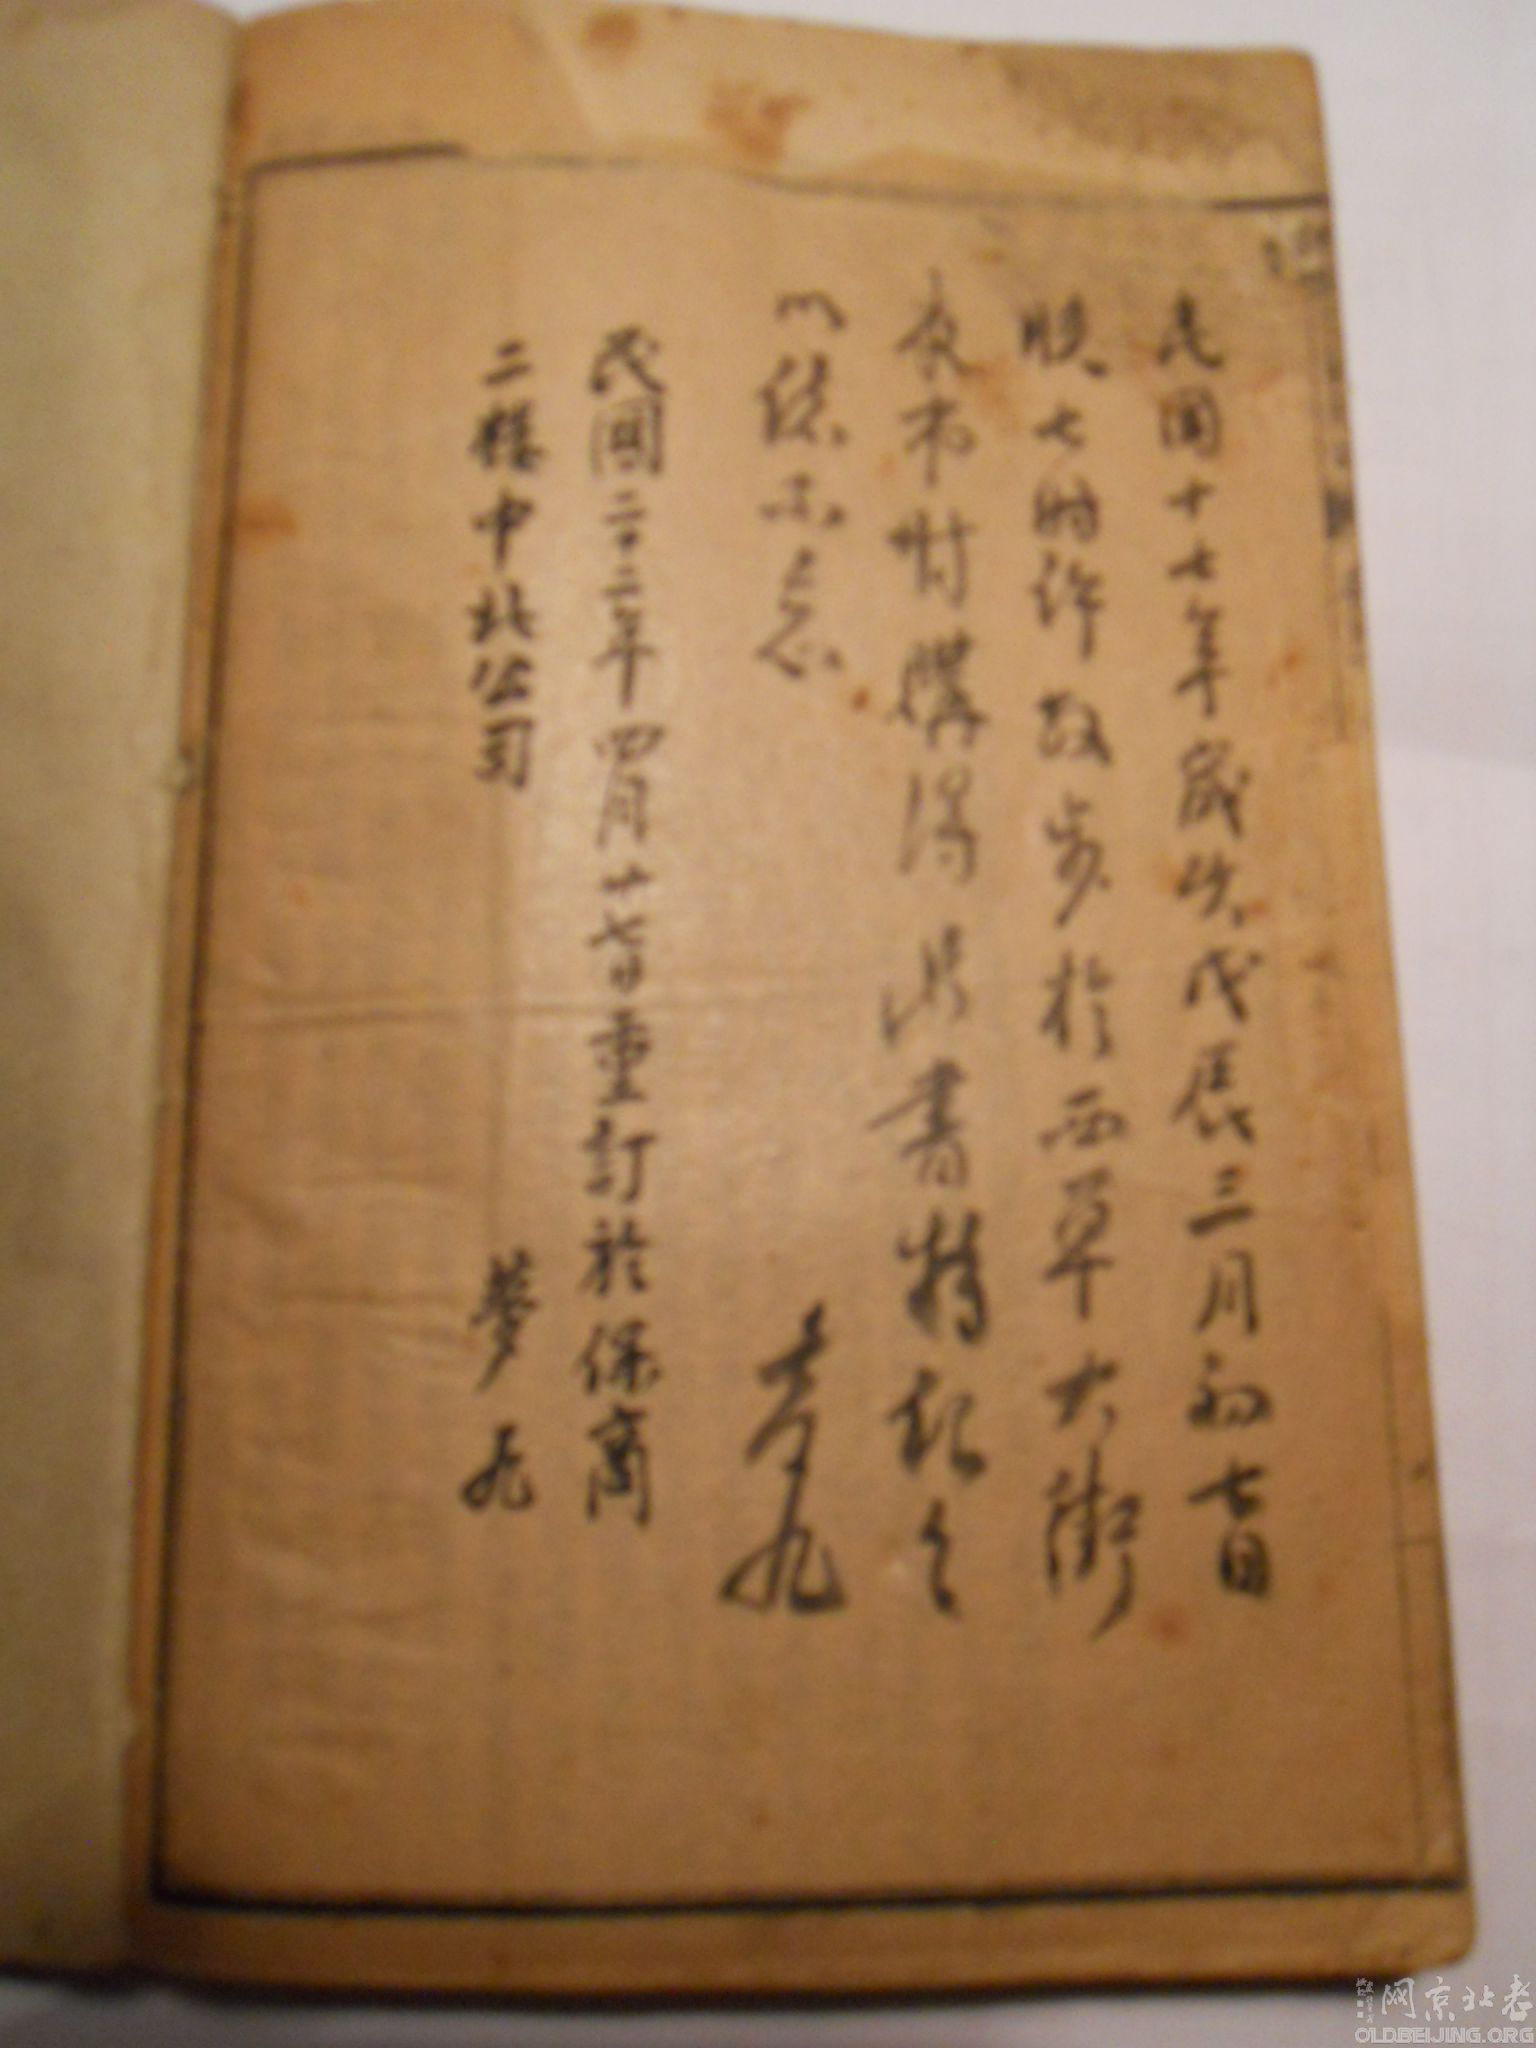 民國十七年歲次戊辰三月初七日
晚七時許散步於西草大街
夜市時購得此書特記之
以誌不忘
夢九
民國二十二年四月廿七日重訂於保商
二樓中北公司
夢九
老北京网
OLDBEIJING.ORG